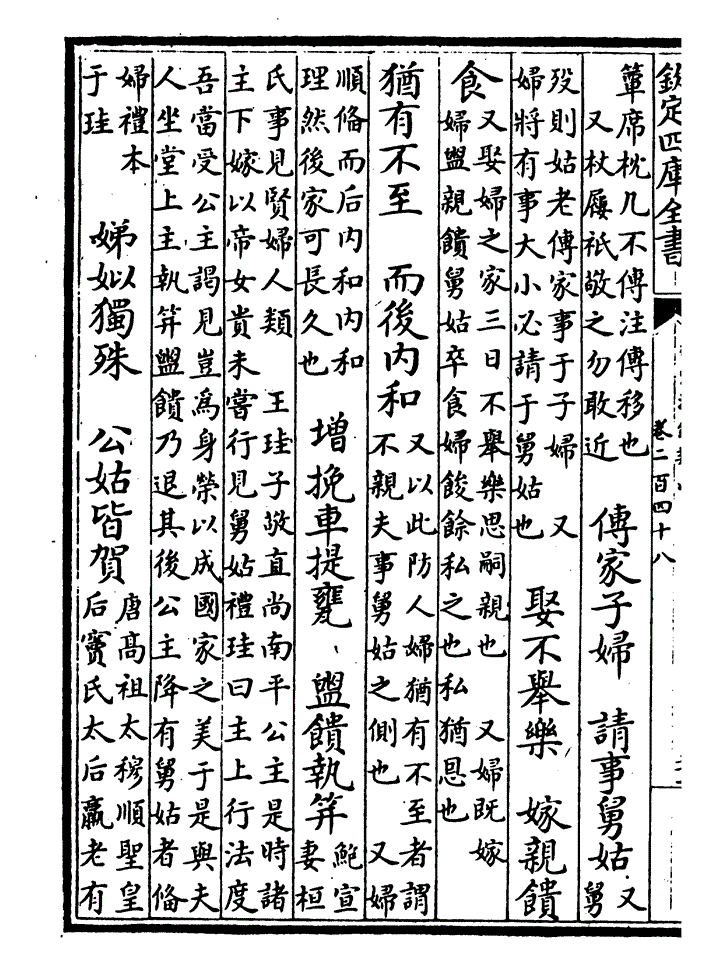 欽定四庫全書
卷二百四十八
簟席枕几不傳注傳移也
又杖屨祗敬之勿敢近
傳家子婦　請事舅姑
又
舅
歿則姑老傳家事于子婦　又
婦將有事大小必請于舅姑也
娶不舉樂　嫁親饋
食
又娶婦之家三日不舉樂思嗣親也　又婦既嫁
婦盥親饋舅姑卒食婦餕餘私之也私猶恩也
猶有不至　而後内和
又以此防人婦猶有不至者謂
不親夫事舅姑之側也　又婦
順備而后内和内和
理然後家可長久也
增挽車提甕、盥饋執笲
鮑宣
妻桓
氏事見賢婦人類　王珪子敬直尚南平公主是時諸
主下嫁以帝女貴未嘗行見舅姑禮珪曰主上行法度
吾當受公主謁見豈為身榮以成國家之美于是與夫
人坐堂上主執笲盥饋乃退其後公主降有舅姑者備
婦禮本
于珪
娣姒獨殊　公姑皆賀
唐高祖太穆順聖皇
后竇氏太后羸老有